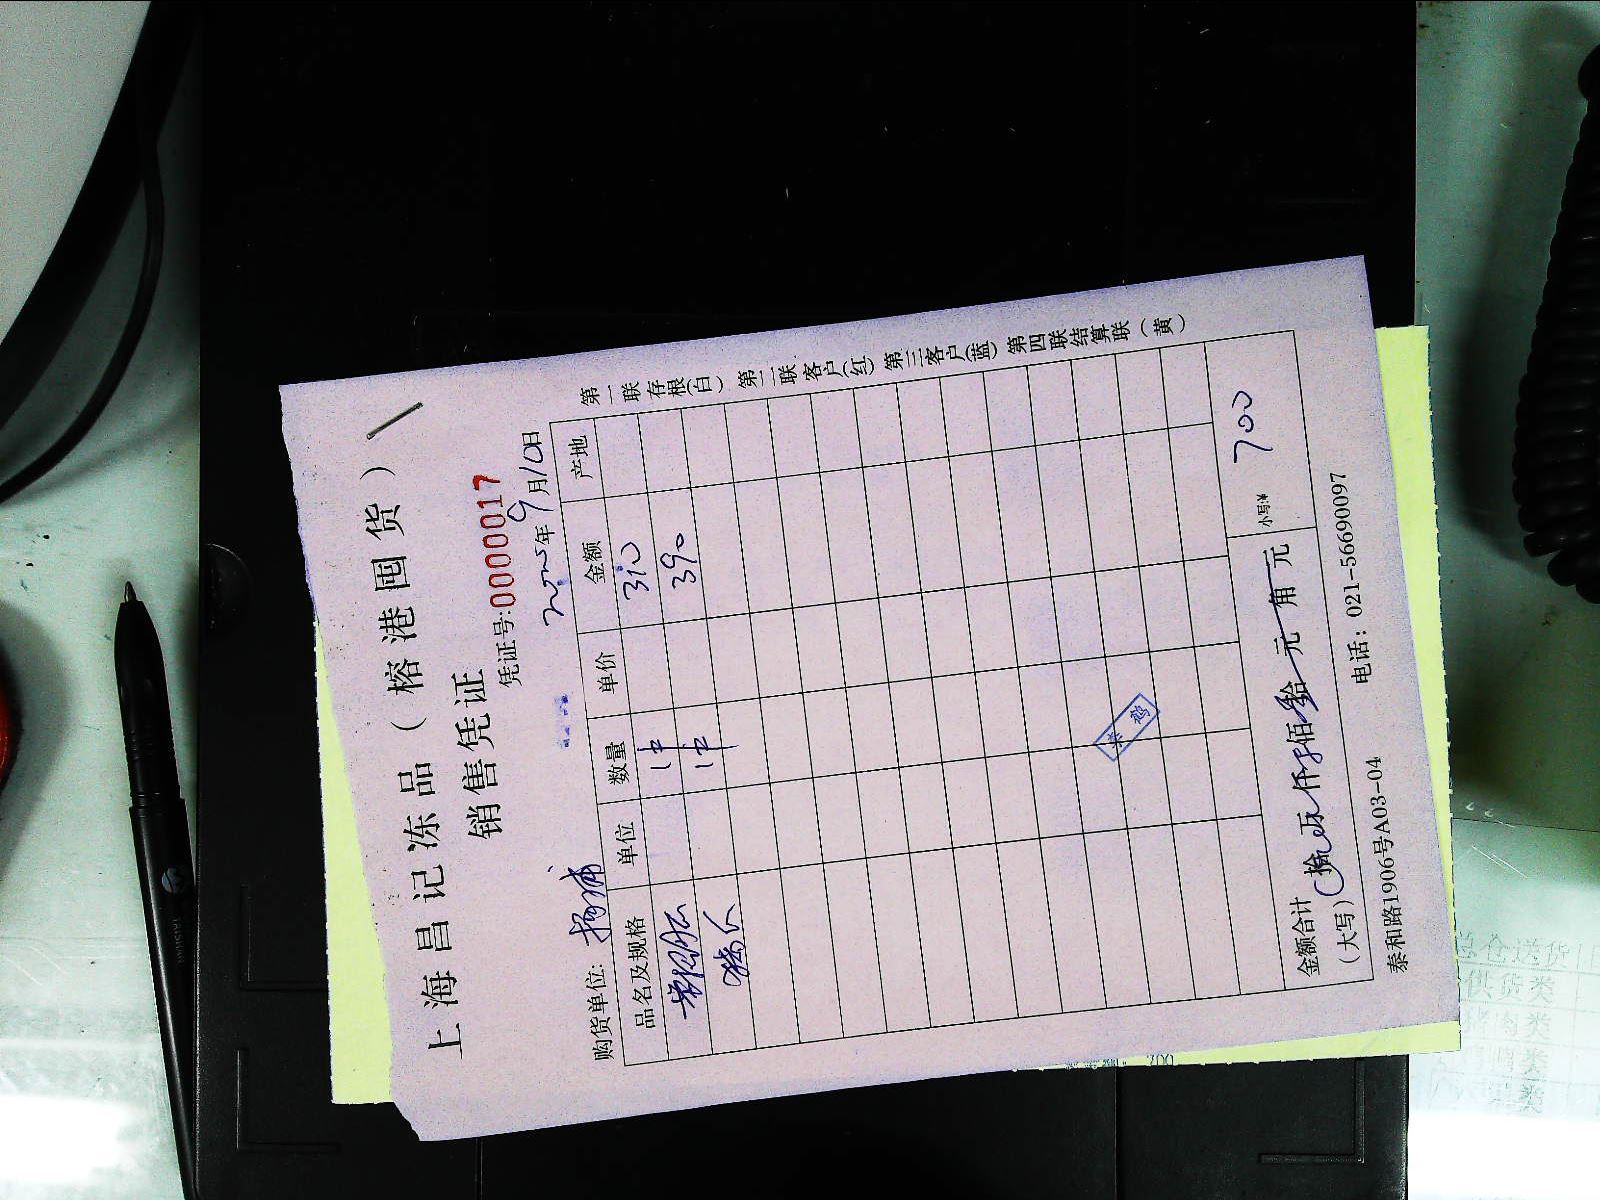 上海昌记冻品（榕港囤货）
销售凭证
凭证号:0000017
2025年9月10日
购货单位: 杨浦
品名及规格 单位 数量 单价 金额 产地
1中 310
1中 390
金额合计（大写） 佰 拾 元 角 元 小写:¥ 700
泰和路1906号A03-04 电话：021-56690097
第一联存根(白) 第二联客户(红) 第三客户(蓝) 第四联结算联（黄）
总仓送货
供货类